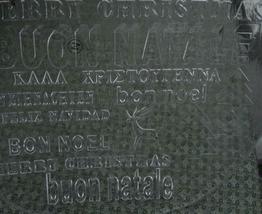 MERRY CHRISTMAS
BUON NATALE
ΚΑΛΑ ΧΡΙΣΤΟΥΓΕΝΝΑ
bon noel
FELIZ NAVIDAD
BON NOEL
MERRY CHRISTMAS
buon natale